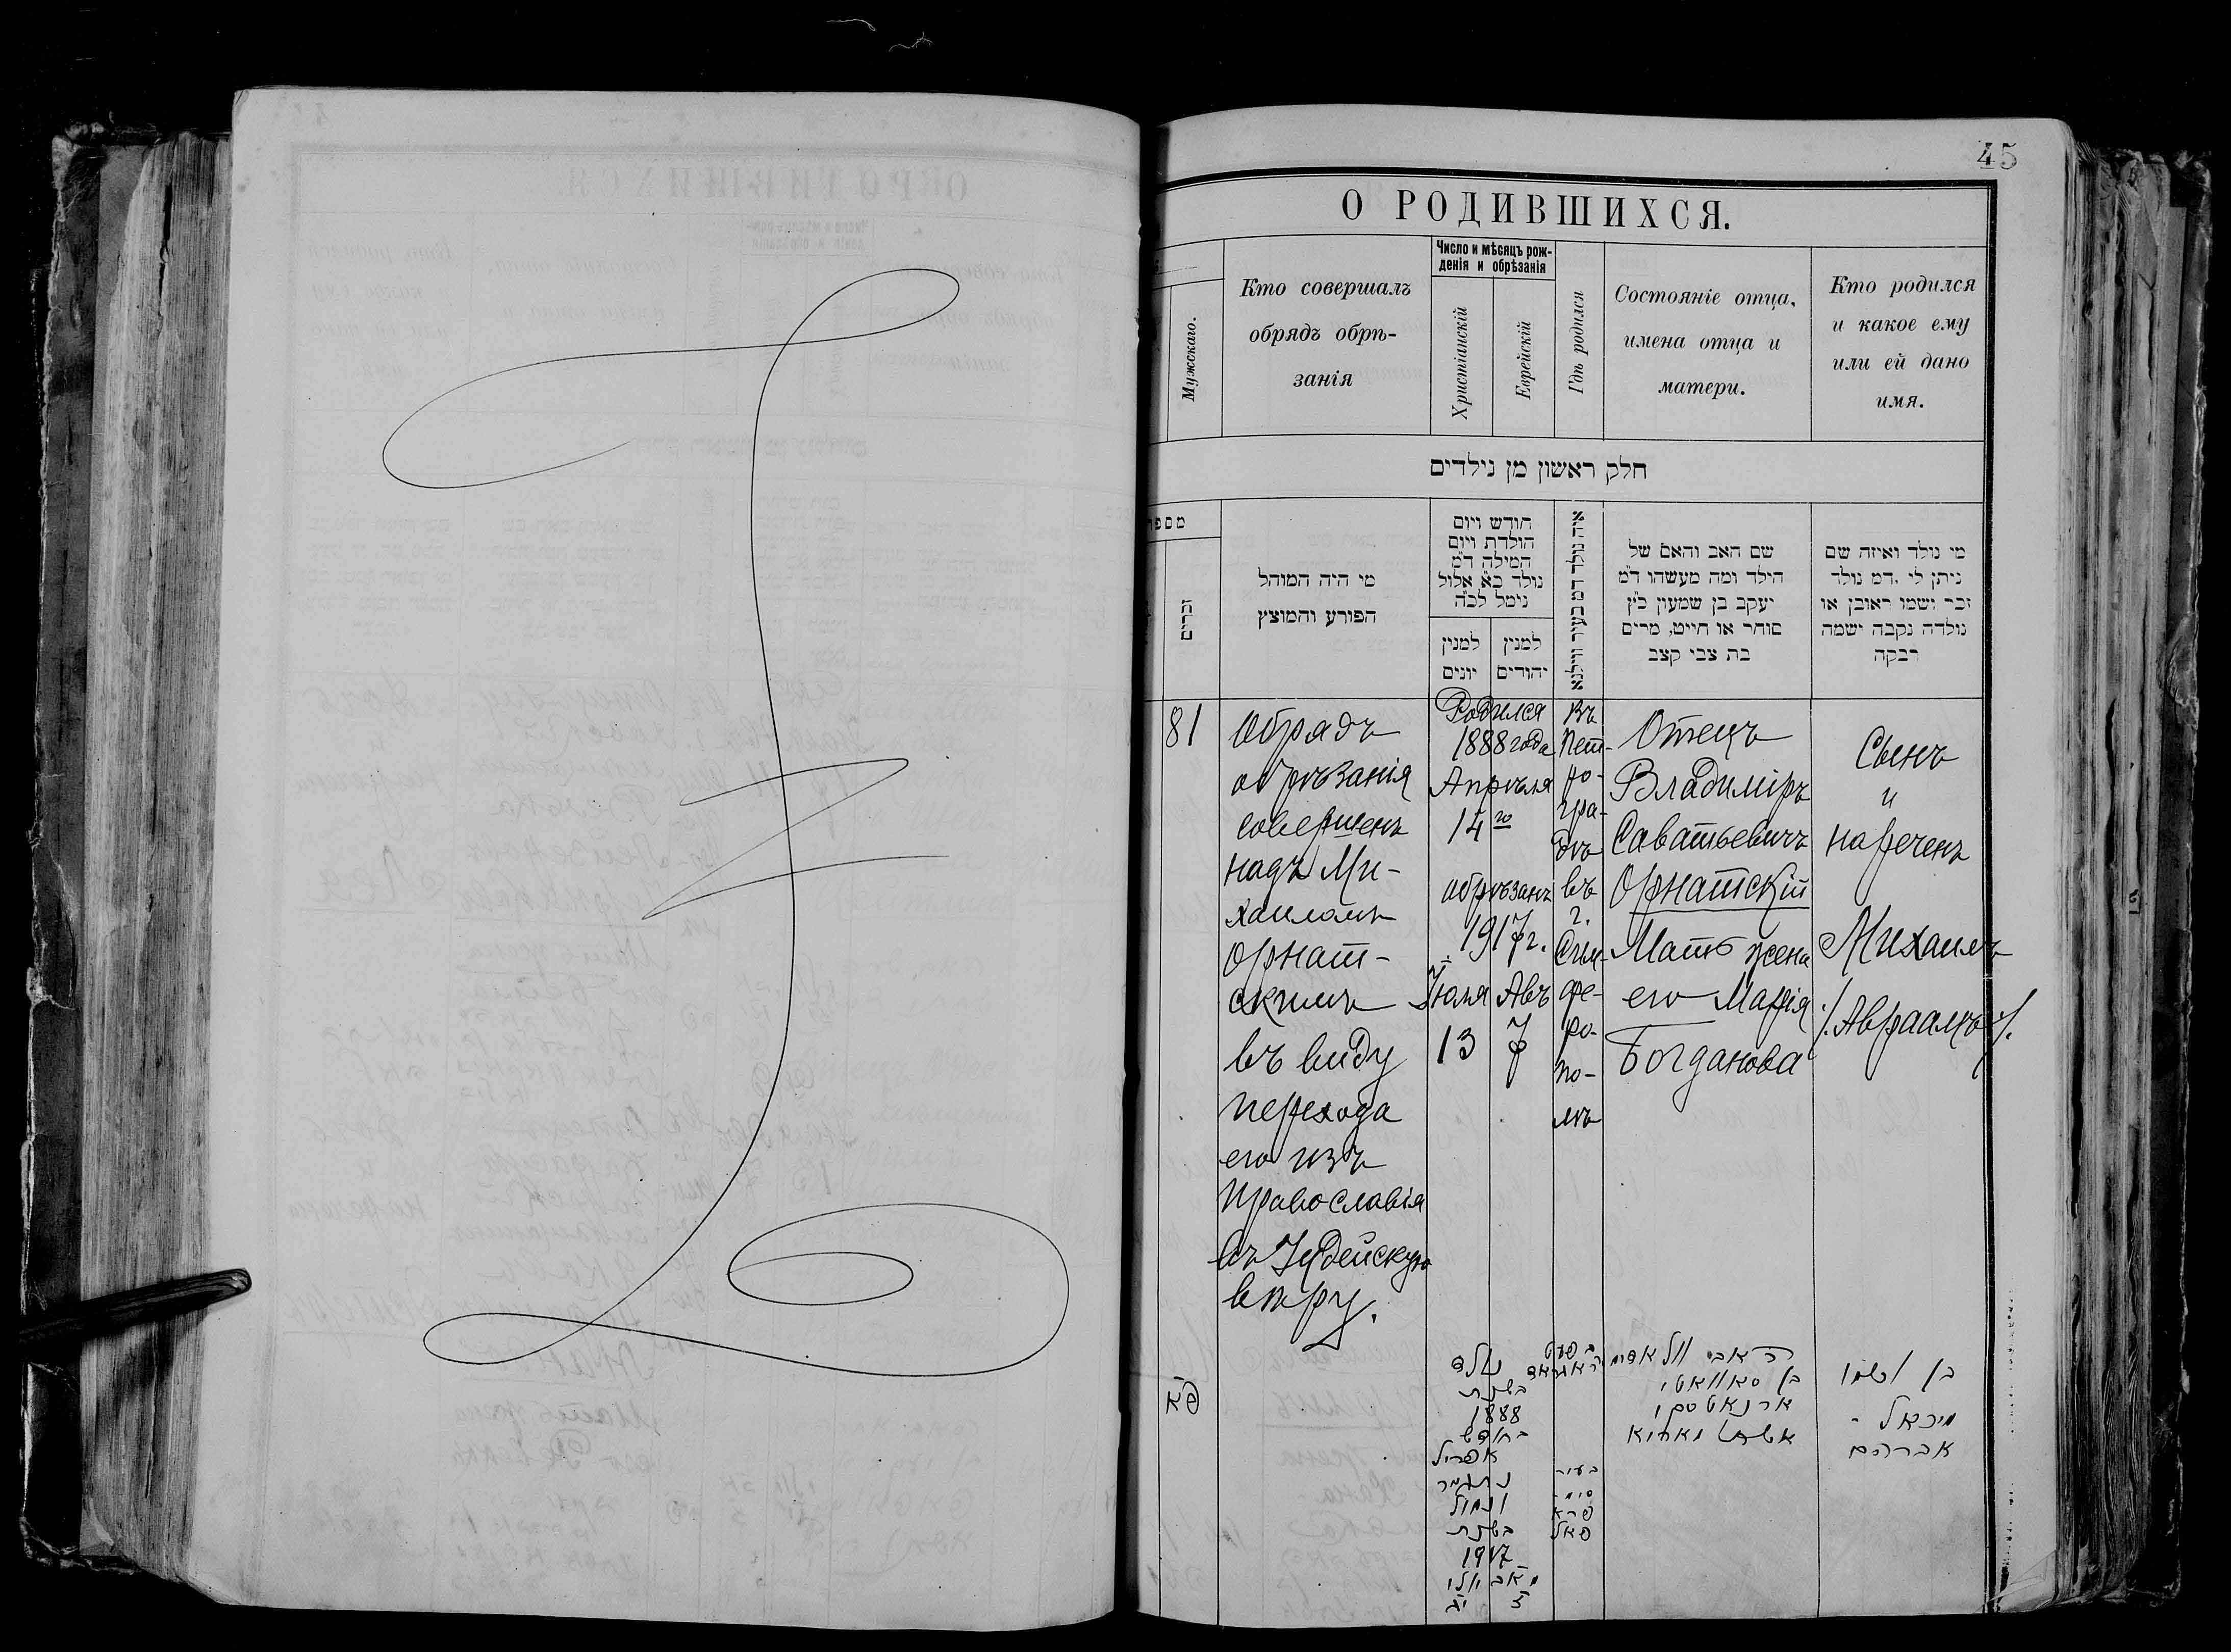 45
О РОДИВШИХСЯ.
Мужскаго.
Кто совершалъ
обрядъ обрѣ-
занія
Число и мѣсяцъ рож-
денія и обрѣзанія
Христіанскій
Еврейскій
Гдѣ родился
Состояніе отца,
имена отца и
матери.
Кто родился
и какое ему
или ей дано
имя.
חלק ראשון מן נילדים
מספר
זכרים
מי היה המוהל
הפורע והמוצץ
חודש ויום
הולדת ויום
המילה ד״מ
נולד כ״א אלול
נימל לכ״ה
למנין
יונים
למנין
יהודים
איה נולד דמ בעיר ווילנא
שם האב והאם של
הילד ומה מעשהו ד״מ
יעקב בן שמעון כ״ץ
סוחר או חייט, מרים
בת צבי קצב
מי נולד ואיזה שם
ניתן לי .דמ נולד
זכר ושמו ראובן או
נולדה נקבה ישמה
רבקה
81
Обрядъ
обрѣзанія
совершенъ
надъ Ми-
хаиломъ
Орнат-
скимъ
въ виду
перехода
его изъ
Православія
въ Іудейскую
вѣру.
Родился
1888 года
Апрѣля
14го
обрѣзанъ
1917 г.
Іюля Авъ
13 7
Въ
Пет-
ро-
гра-
дѣ
въ
г.
Сим-
фе-
ро-
по-
лѣ
Отецъ
Владиміръ
Саватьевичъ
Орнатскій
Мать жена
его Марія
Богданова
Сынъ
и
нареченъ
Михаилъ
/.Авраамъ./.
פ״א
נולד
בשנת
1888
בחודש
אפריל
נתגייר
ונימול
בשנת
1917
אב יולי
ז יג
בעיר
סימ-
פרא
פאל
האב וולאדימ
בן סאוואטי
ארנאטסקי
אשתו מאריא
בן ושמו
מיכאל -
אברהם